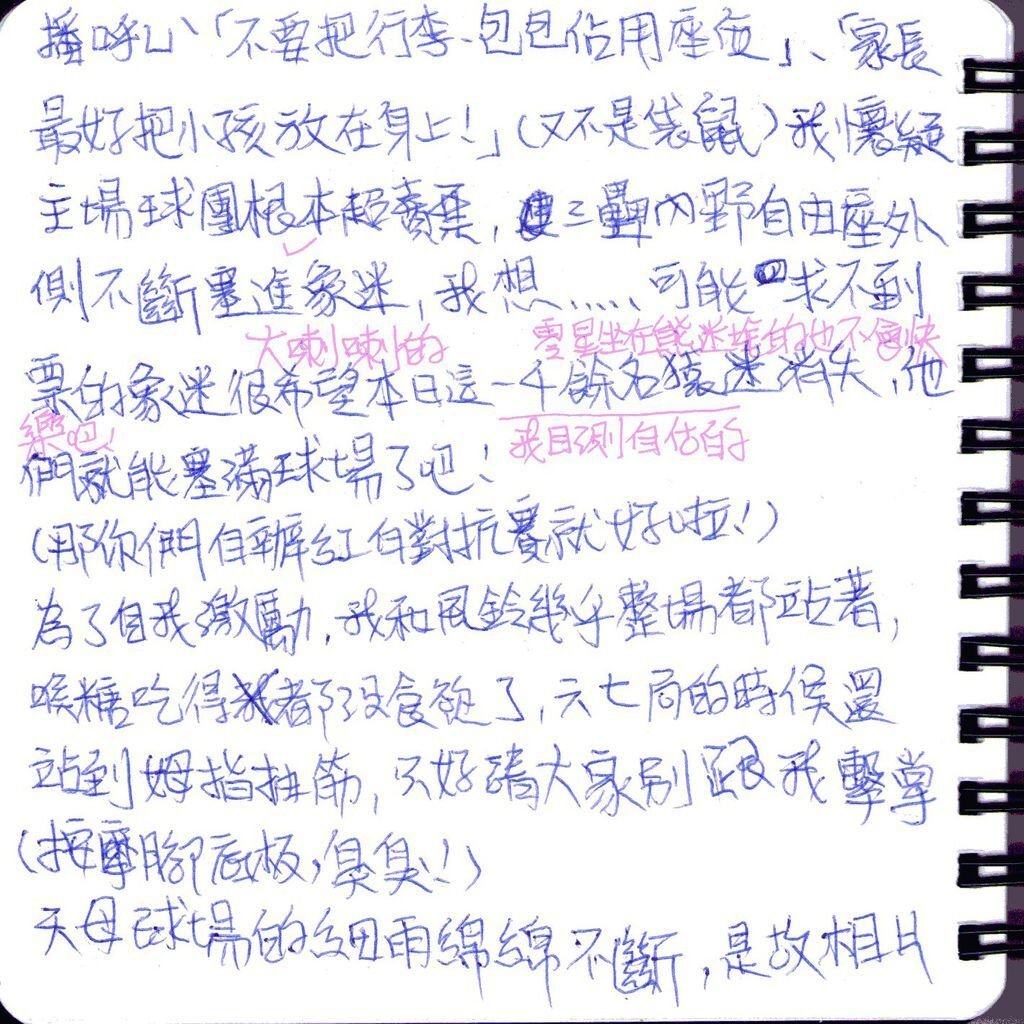 播呼山、「不要把行李、包包佔用座位」、「家長
最好把小孩放在身上!」(又不是袋鼠)我懷疑
主場球團根本超賣票,三壘內野自由座外
側不斷塞進象迷,我想......可能求不到
大喇喇的 零星坐在熊迷堆的他不會快
票的象迷很希望本日這一千餘名猿迷消失,他
樂吧! 我目測自估的
們就能塞滿球場了吧!
(那你們自辦紅白對抗賽就好啦!)
為了自我激勵,我和風鈴幾乎整場都站著,
喉糖吃得都沒食慾了,六七局的時候還
站到姆指抽筋,只好請大家別跟我擊掌
(按摩腳底板,臭臭!)
天母球場的細雨綿綿不斷,是故相片